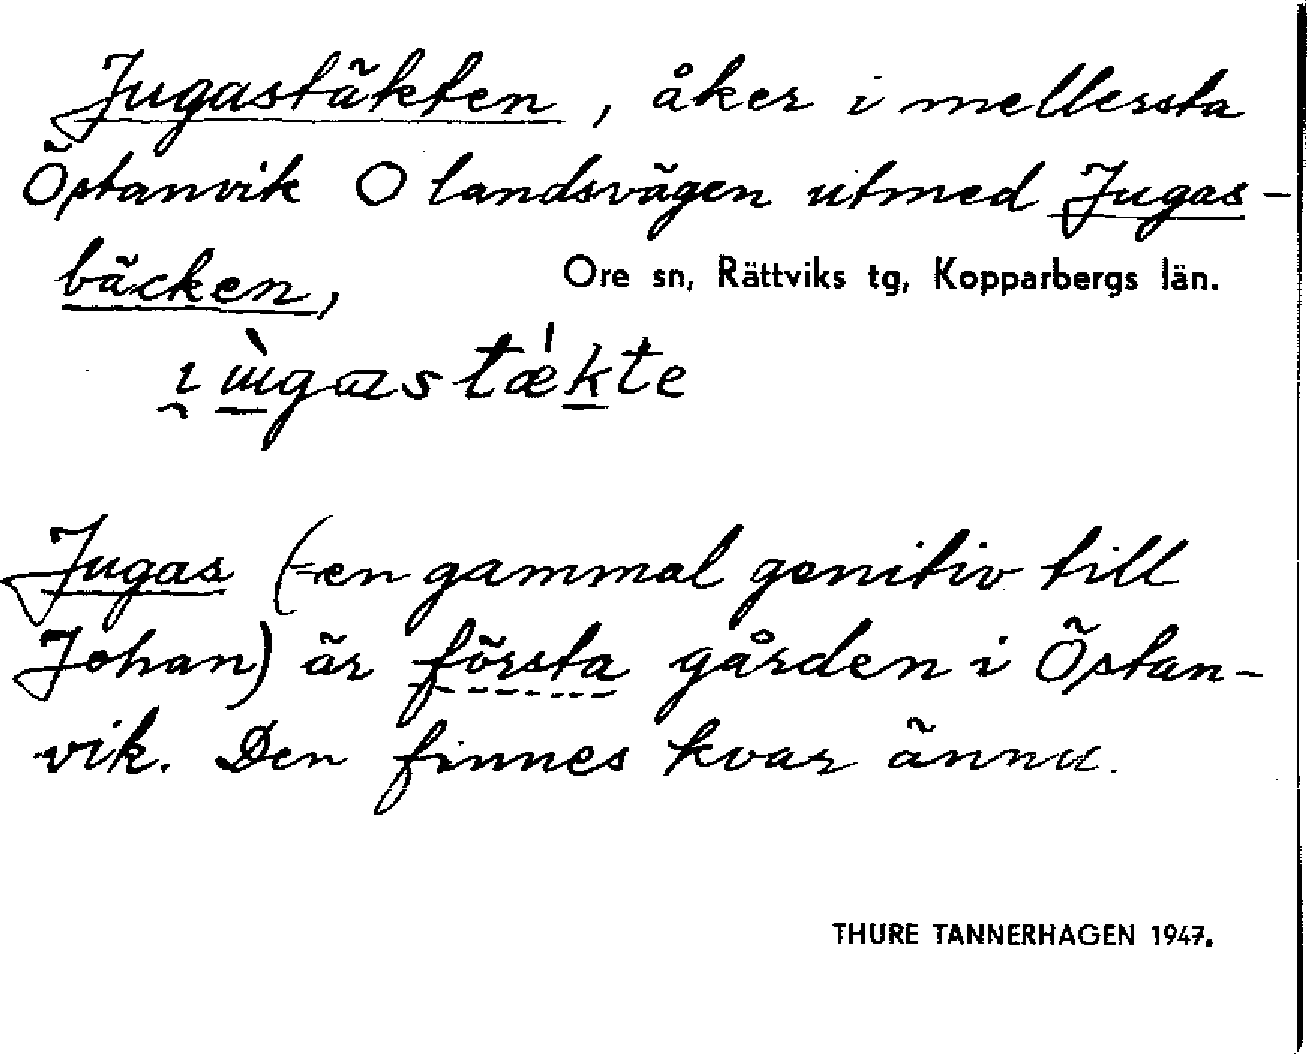 Jugastäkten, åker i mellersta
Östanvik O landsvägen utmed Jugas-
bäcken,
Ore sn, Rättviks tg, Kopparbergs län.
Jugas (= en gammal genitiv till
Johan) är första gården i Östan-
vik. Den finnes kvar ännu.
THURE TANNERHAGEN 1947.